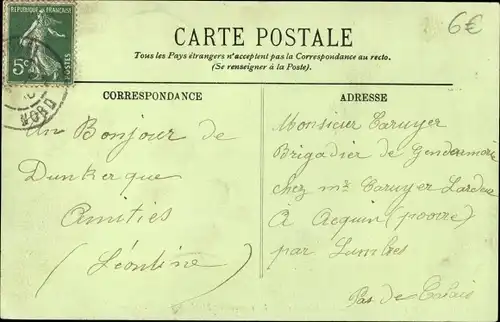 REPUBLIQUE FRANÇAISE
5c
POSTES
NORD
6€
CARTE POSTALE
Tous les Pays étrangers n'acceptent pas la Correspondance au recto.
(Se renseigner à la Poste).
CORRESPONDANCE
Un Bonjour de
Dunkerque
Amitiés
(Léontine)
ADRESSE
Monsieur Caruyer
Brigadier de Gendarmerie
chez mr Caruyer
À Acquin
par Lumbres
Pas de Calais